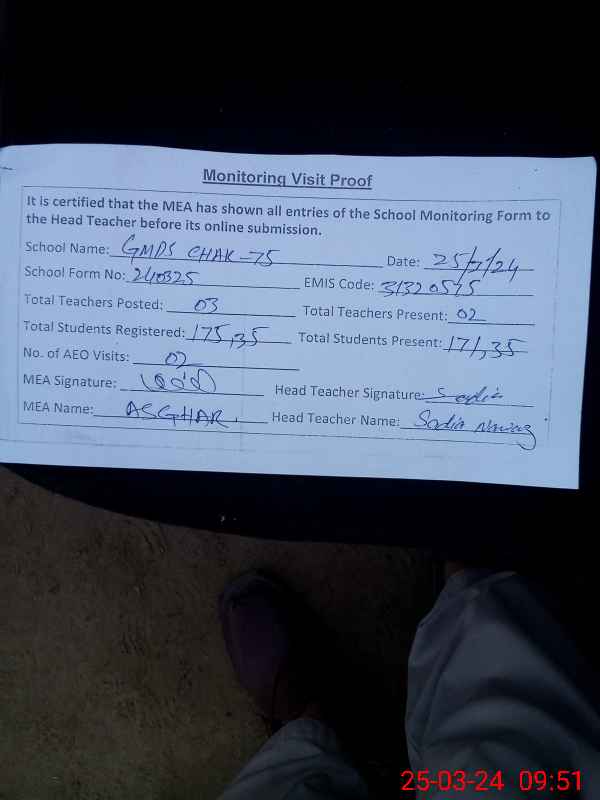 Monitoring Visit Proof
It is certified that the MEA has shown all entries of the School Monitoring Form to
the Head Teacher before its online submission.
School Name: GMPS CHAK-75 Date: 25/3/24
School Form No: 240325 EMIS Code: 31320515
Total Teachers Posted: 03 Total Teachers Present: 02
Total Students Registered: 175,35 Total Students Present: 171,35
No. of AEO Visits: 02
MEA Signature: Head Teacher Signature: Sadia
MEA Name: ASGHAR. Head Teacher Name: Sadia Nawaz
25-03-24 09:51